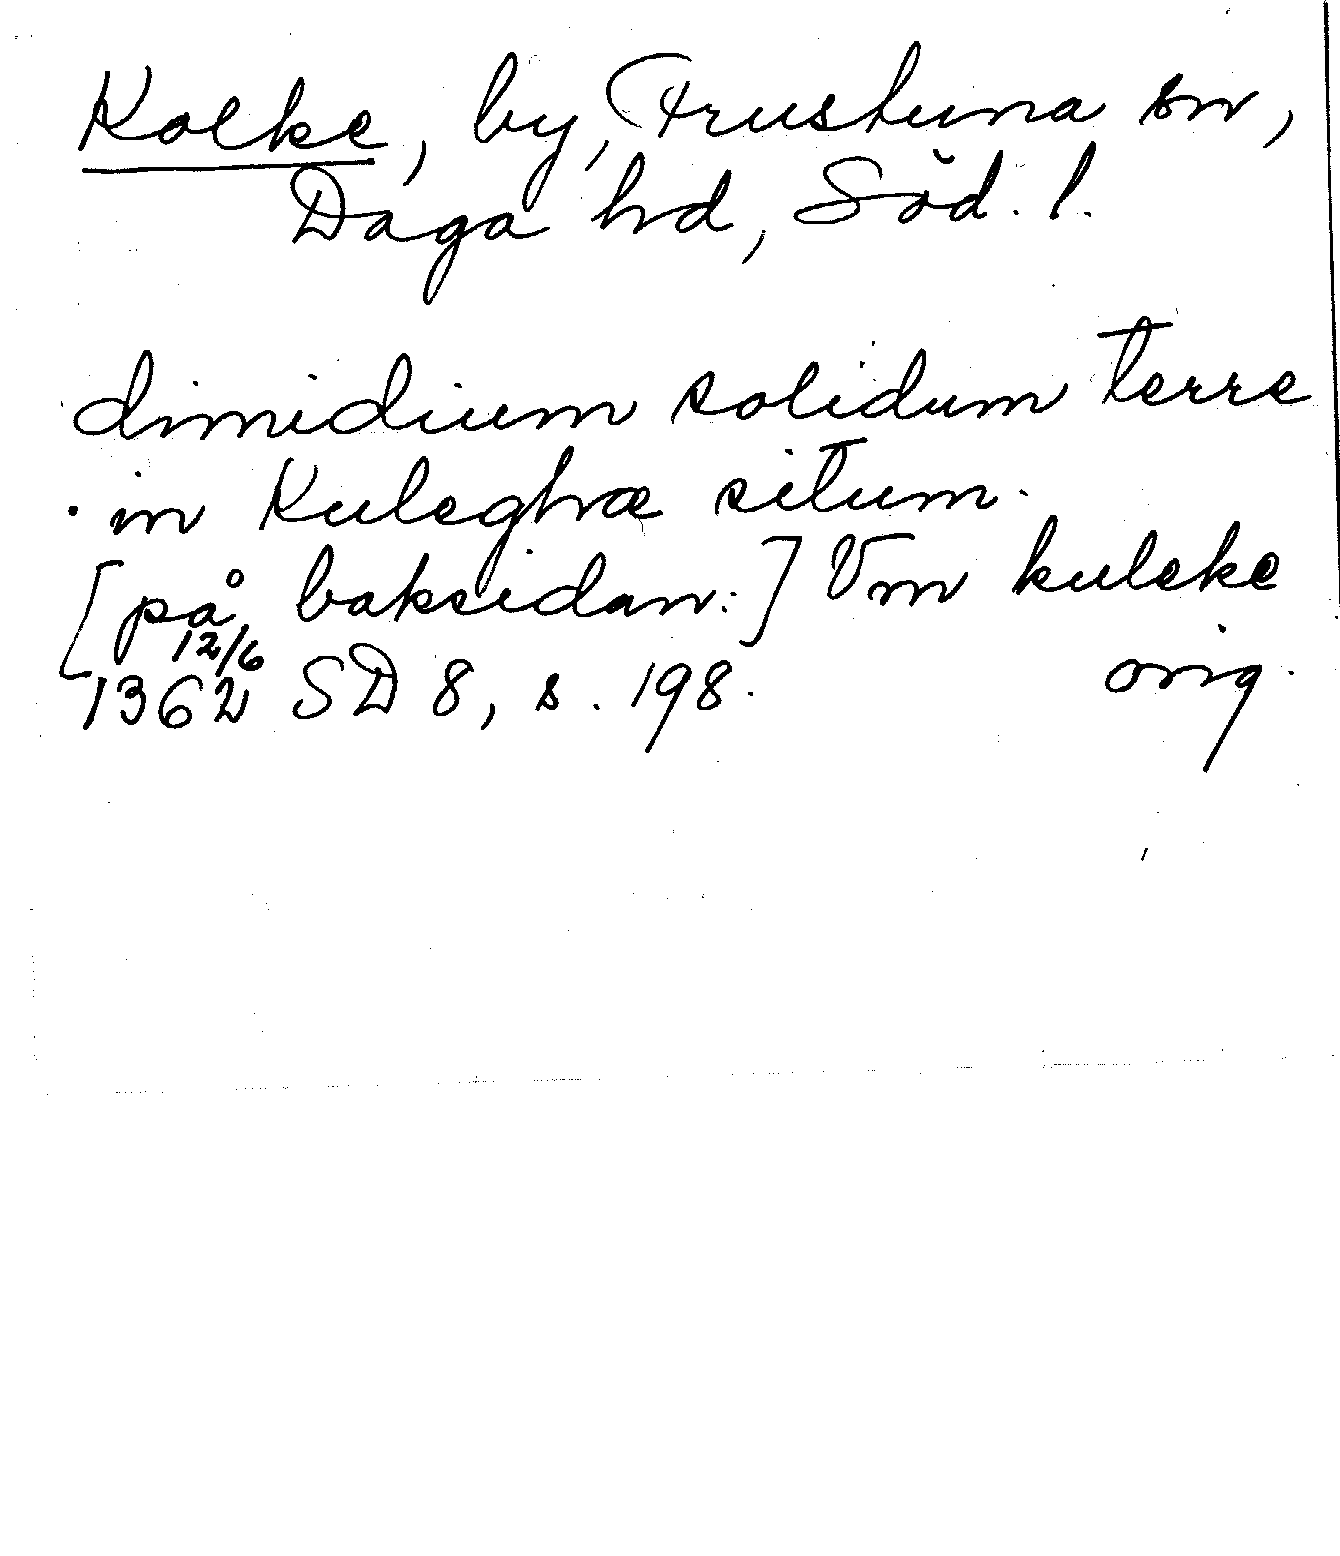 Kolke, by, Frustuna sn,
Daga hd, Söd. l.
dimidium solidum terre
in Kuleghæ situm.
[på baksidan:] Vm kuleke
12/6
1362 SD 8, s. 198. orig.